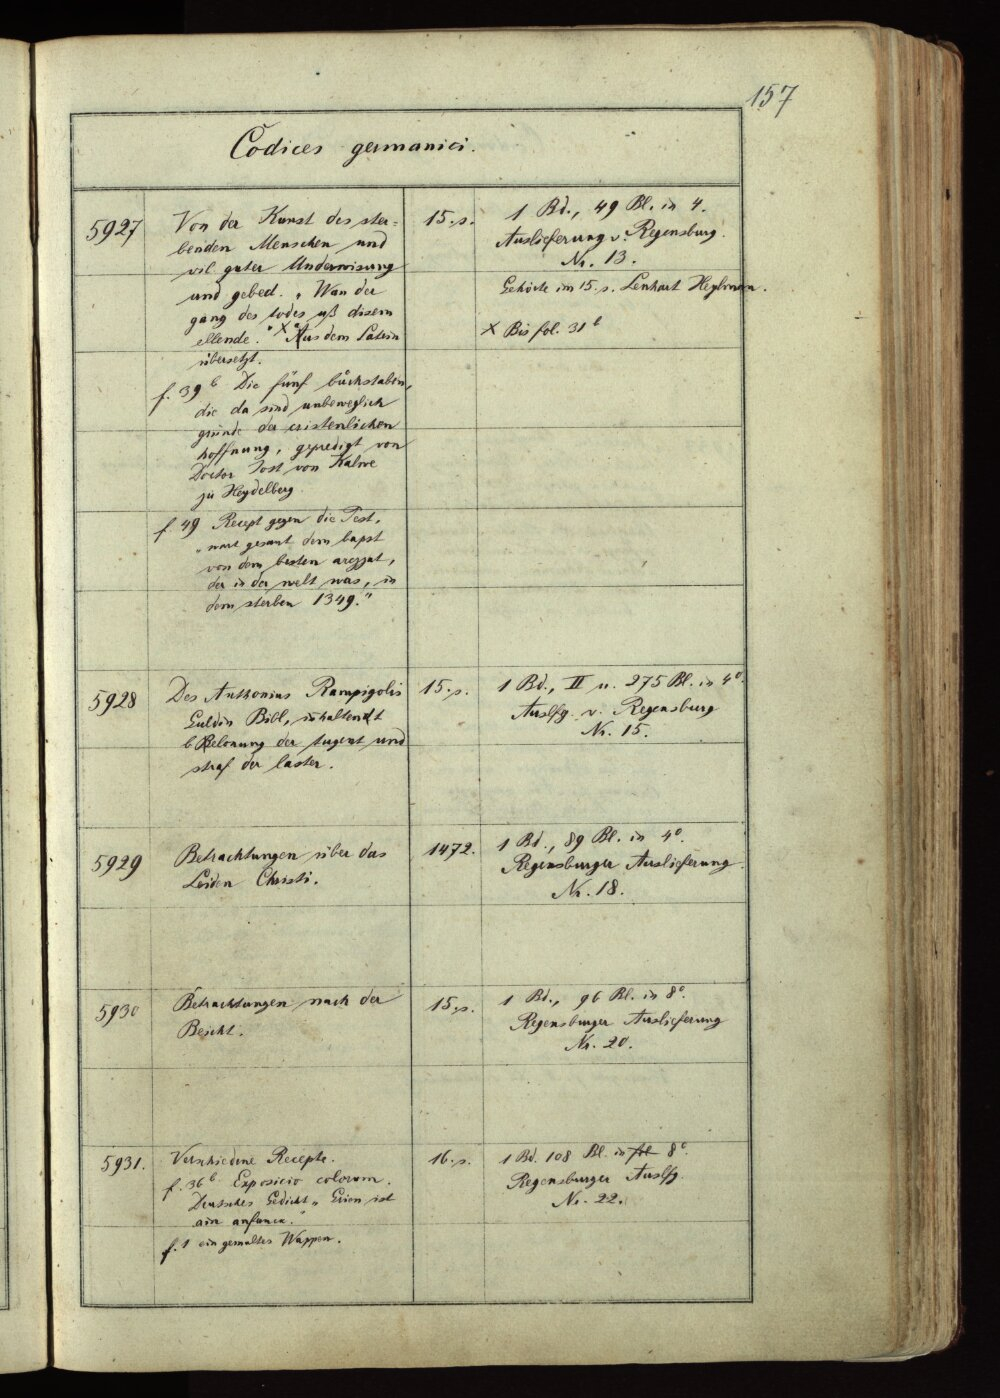 157
Codices germanici.
5927
Von der Kunst des ster-
benden Menschen und
vil guter Underwisung
und gebed. „Wan der
gang des todes uß disem
ellende." X Aus dem Latein
übersetzt.
f. 39 b Die fünf bůchstaben,
die da sind unbeweglich
gründe der cristenlichen
hoffnung, gepredigt von
Doctor Jost von Kalwe
zu Heydelberg.
f. 49 Recept gegen die Pest,
„wart gesant dem bapst
von dem besten arczat,
der in der welt was, in
dem sterben 1349."
15. s.
1 Bd., 49 Bl. in 4.
Auslieferung v. Regensburg.
Nr. 13.
Gehörte im 15. s. Lenhart Heylman.
X Bis fol. 31 b
5928
Des Anthonius Rampigolis
Guldin Bibl, inhaltendt
Belonung der tugent und
straf der laster.
15. s.
1 Bd., II u. 275 Bl. in 4º.
Auslfg. v. Regensburg
Nr. 15.
5929
Betrachtungen über das
Leiden Christi.
1472.
1 Bd., 89 Bl. in 4º.
Regensburger Auslieferung.
Nr. 18.
5930
Betrachtungen nach der
Beicht.
15. s.
1 Bd., 96 Bl. in 8º.
Regensburger Auslieferung
Nr. 20.
5931.
Verschiedene Recepte.
f. 36 b. Exposicio colorum.
Deutsches Gedicht „Grien ist
ain anfanck."
f. 1 ein gemaltes Wappen.
16. s.
1 Bd. 108 Bl. in 8º
Regensburger Auslfg.
Nr. 22.